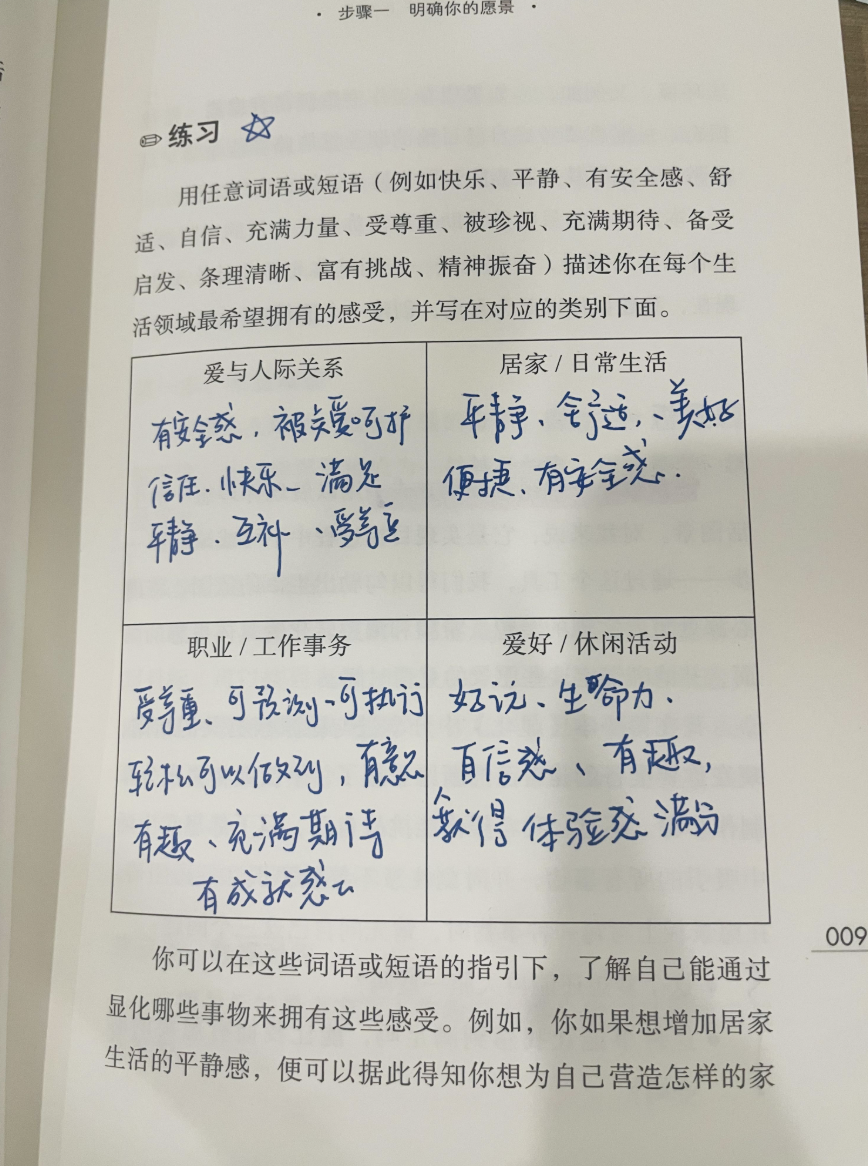 · 步骤一 明确你的愿景 ·
练习 ☆
用任意词语或短语（例如快乐、平静、有安全感、舒
适、自信、充满力量、受尊重、被珍视、充满期待、备受
启发、条理清晰、富有挑战、精神振奋）描述你在每个生
活领域最希望拥有的感受，并写在对应的类别下面。
爱与人际关系
有安全感，被关爱呵护
信任、快乐、满足
平静、互补、受尊重
居家 / 日常生活
平静、舒适、美好
便捷、有安全感.
职业 / 工作事务
受尊重、可预测、可执行
轻松可以做到，有意义
有趣、充满期待
有成就感
爱好 / 休闲活动
好玩、生命力、
自信感、有趣，
获得体验感 满分
009
你可以在这些词语或短语的指引下，了解自己能通过
显化哪些事物来拥有这些感受。例如，你如果想增加居家
生活的平静感，便可以据此得知你想为自己营造怎样的家